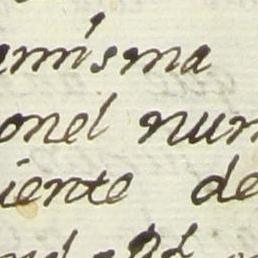 amisma
onel num
iente de